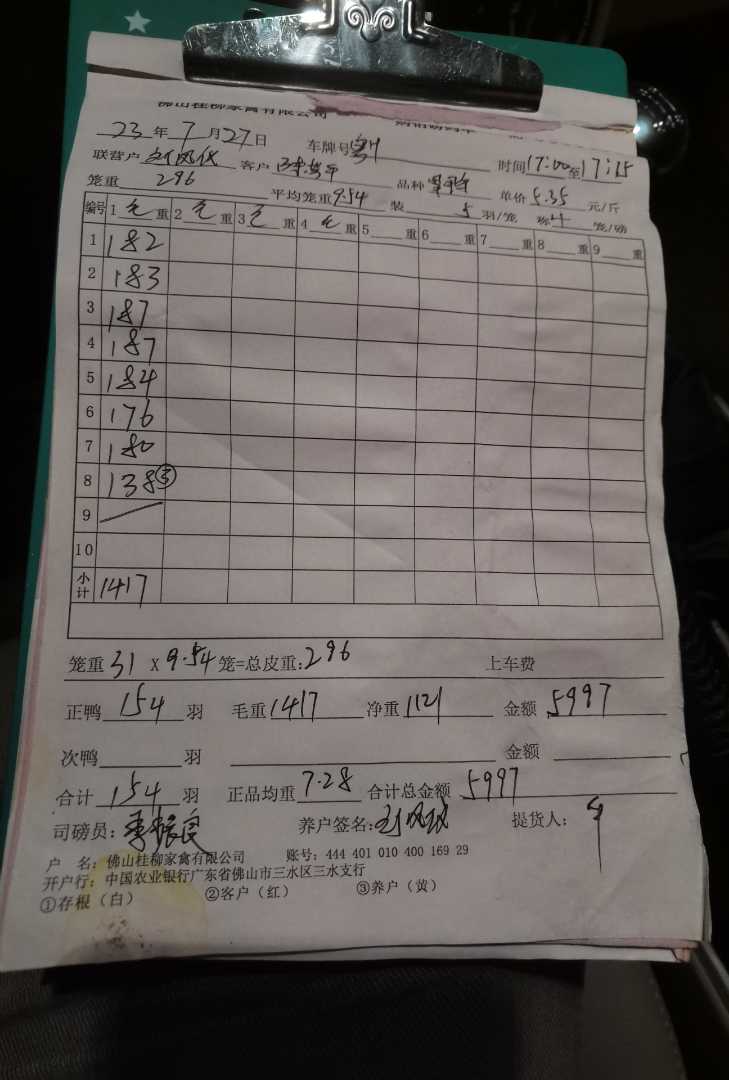 佛山桂柳家禽有限公司
23年7月27日 车牌号 粤 时间17:00至17:15
联营户 客户 品种 单价5.35元/斤
笼重 296 平均笼重9.54 装 5 羽/笼 称4笼/磅
编号 1 毛 重 2 毛 重 3 毛 重 4 毛 重 5 重 6 重 7 重 8 重 9 重
1 182
2 183
3 187
4 187
5 184
6 176
7 180
8 138③
9
10
小计 1417
笼重 31 x 9.54 笼=总皮重:296 上车费
正鸭 154 羽 毛重1417 净重1121 金额 5997
次鸭 羽 金额
合计 154 羽 正品均重7.28 合计总金额 5997
司磅员:李振良 养户签名: 提货人:
户 名:佛山桂柳家禽有限公司 账号:444 401 010 400 169 29
开户行:中国农业银行广东省佛山市三水区三水支行
①存根(白) ②客户(红) ③养户(黄)